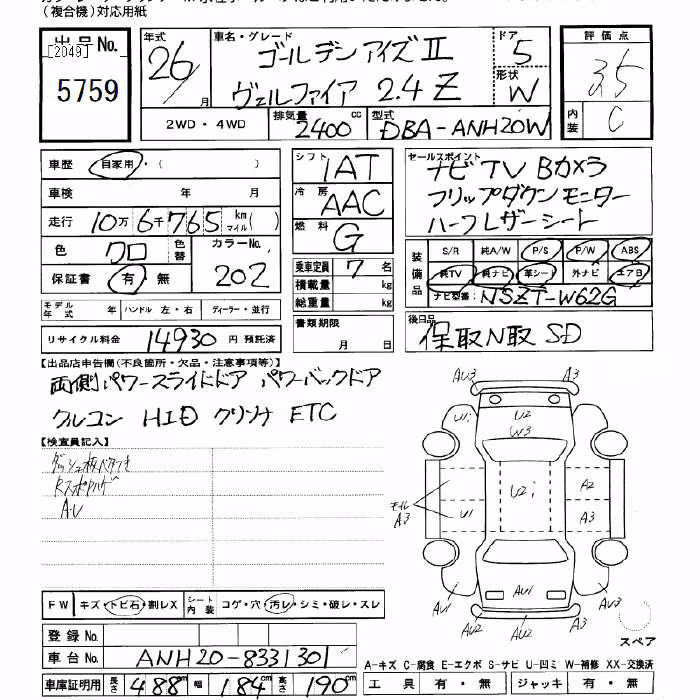 (複合機)対応用紙
出品No. [2049] 5759
年式 26/ 月
車名・グレード ゴールデンアイズⅡ
ヴェルファイア 2.4 Z
ドア 5
形状 W
評価点 3.5
内装 C
2WD・4WD 排気量 2400 cc 型式 DBA-ANH20W
車歴 自家用・( )
車検 年 月
走行 10万6千765 km マイル( )
色 クロ 色替 カラーNo. 202
保証書 有・無
モデル年式 年 ハンドル 左・右 ディーラー・並行
リサイクル料金 14930 円 預託済
シフト 1AT
冷房 AAC
燃料 G
乗車定員 7 名
積載量 kg
総重量 kg
書類期限 月 日
セールスポイント ナビ TV Bカメラ
フリップダウンモニター
ハーフレザーシート
装備品 S/R 純A/W P/S P/W ABS
純TV 純ナビ 革シート 外ナビ エアB
ナビ型番: NSZT-W62G
後日品 保取N取 SD
【出品店申告欄(不良箇所・欠品・注意事項等)】
両側パワースライドドア パワーバックドア
クルコン HID クリソナ ETC
【検査員記入】
A・U
FW キズ・トビ石・割レX シート内装 コゲ・穴・汚レ・シミ・破レ・スレ
登録No.
車台No. ANH20-8331301
車庫証明用 長さ 488 cm 幅 184 cm 高さ 190 cm
AU3 A3
U1 U2 W3
モール A3 U1 U2 A2 A3
AU1 AU1 A3
AU2 AU2
スペア
A-キズ C-腐食 E-エクボ S-サビ U-凹ミ W-補修 XX-交換済
工具 有・無 ジャッキ 有・無